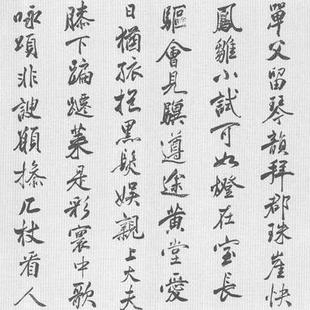 單父留琴韻拜郡珠崖快
鳳雛小試可如燈在室長
驅會見驥遵途黄堂愛
日猶孩抱黑髮娛親上大夫
膝下蹁躚萊是彩寰中歌
咏頌非諛願搽几杖看人